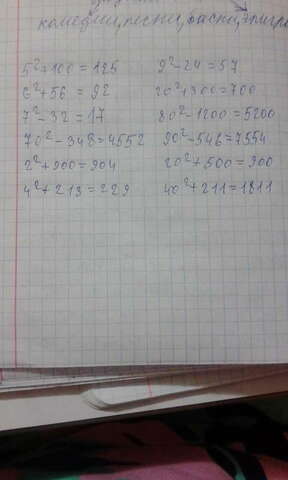 комедии, песни, басни,
5²+100=125
6²+56=92
7²-32=17
70²-348=4552
2²+900=904
4²+213=229
9²-24=57
20²+300=700
80²-1200=5200
90²-546=7554
20²+500=900
40²+211=1811